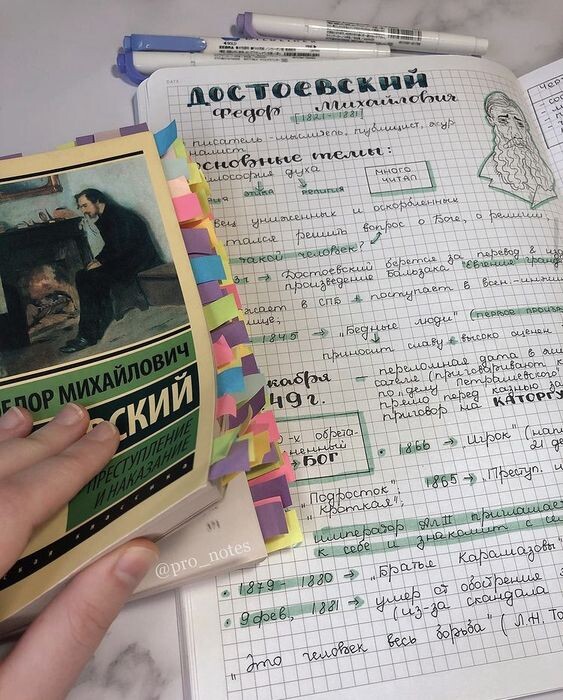 ДАТА
ДОСТОЕВСКИЙ
Федор Михайлович
[1821 - 1881]
писатель-мыслитель, публицист, жур
налист
основные темы:
философия духа
этика религия
много
читал
певец униженных и оскорбленных
решить вопрос о Боге, о религии,
такой человек?
Достоевский берется за перевод в
произведение Бальзака "Евгения
в СПБ поступает в воен.-инжен
1845 → „Бедные люди"
приносит славу, высоко оценен
декабря
49 г.
- переломная дата в
сателе (приговаривают к
по „делу Петрашевского"
прямо перед казнью
приговор на КАТОРГУ
-х обрета
ненный
БОГ
• 1866 → „Игрок"
21
1865 → „Преступ. и
„Подросток"
„Кроткая".
император Ал. II приглашает
к себе и знакомит с
• 1879 - 1880 → „Братья Карамазовы"
• 9 фев, 1881 → умер от
(из-за скандала
„Это человек весь борьба" (Л.Н. То
ФЕДОР МИХАЙЛОВИЧ
ПРЕСТУПЛЕНИЕ
И НАКАЗАНИЕ
@pro_notes